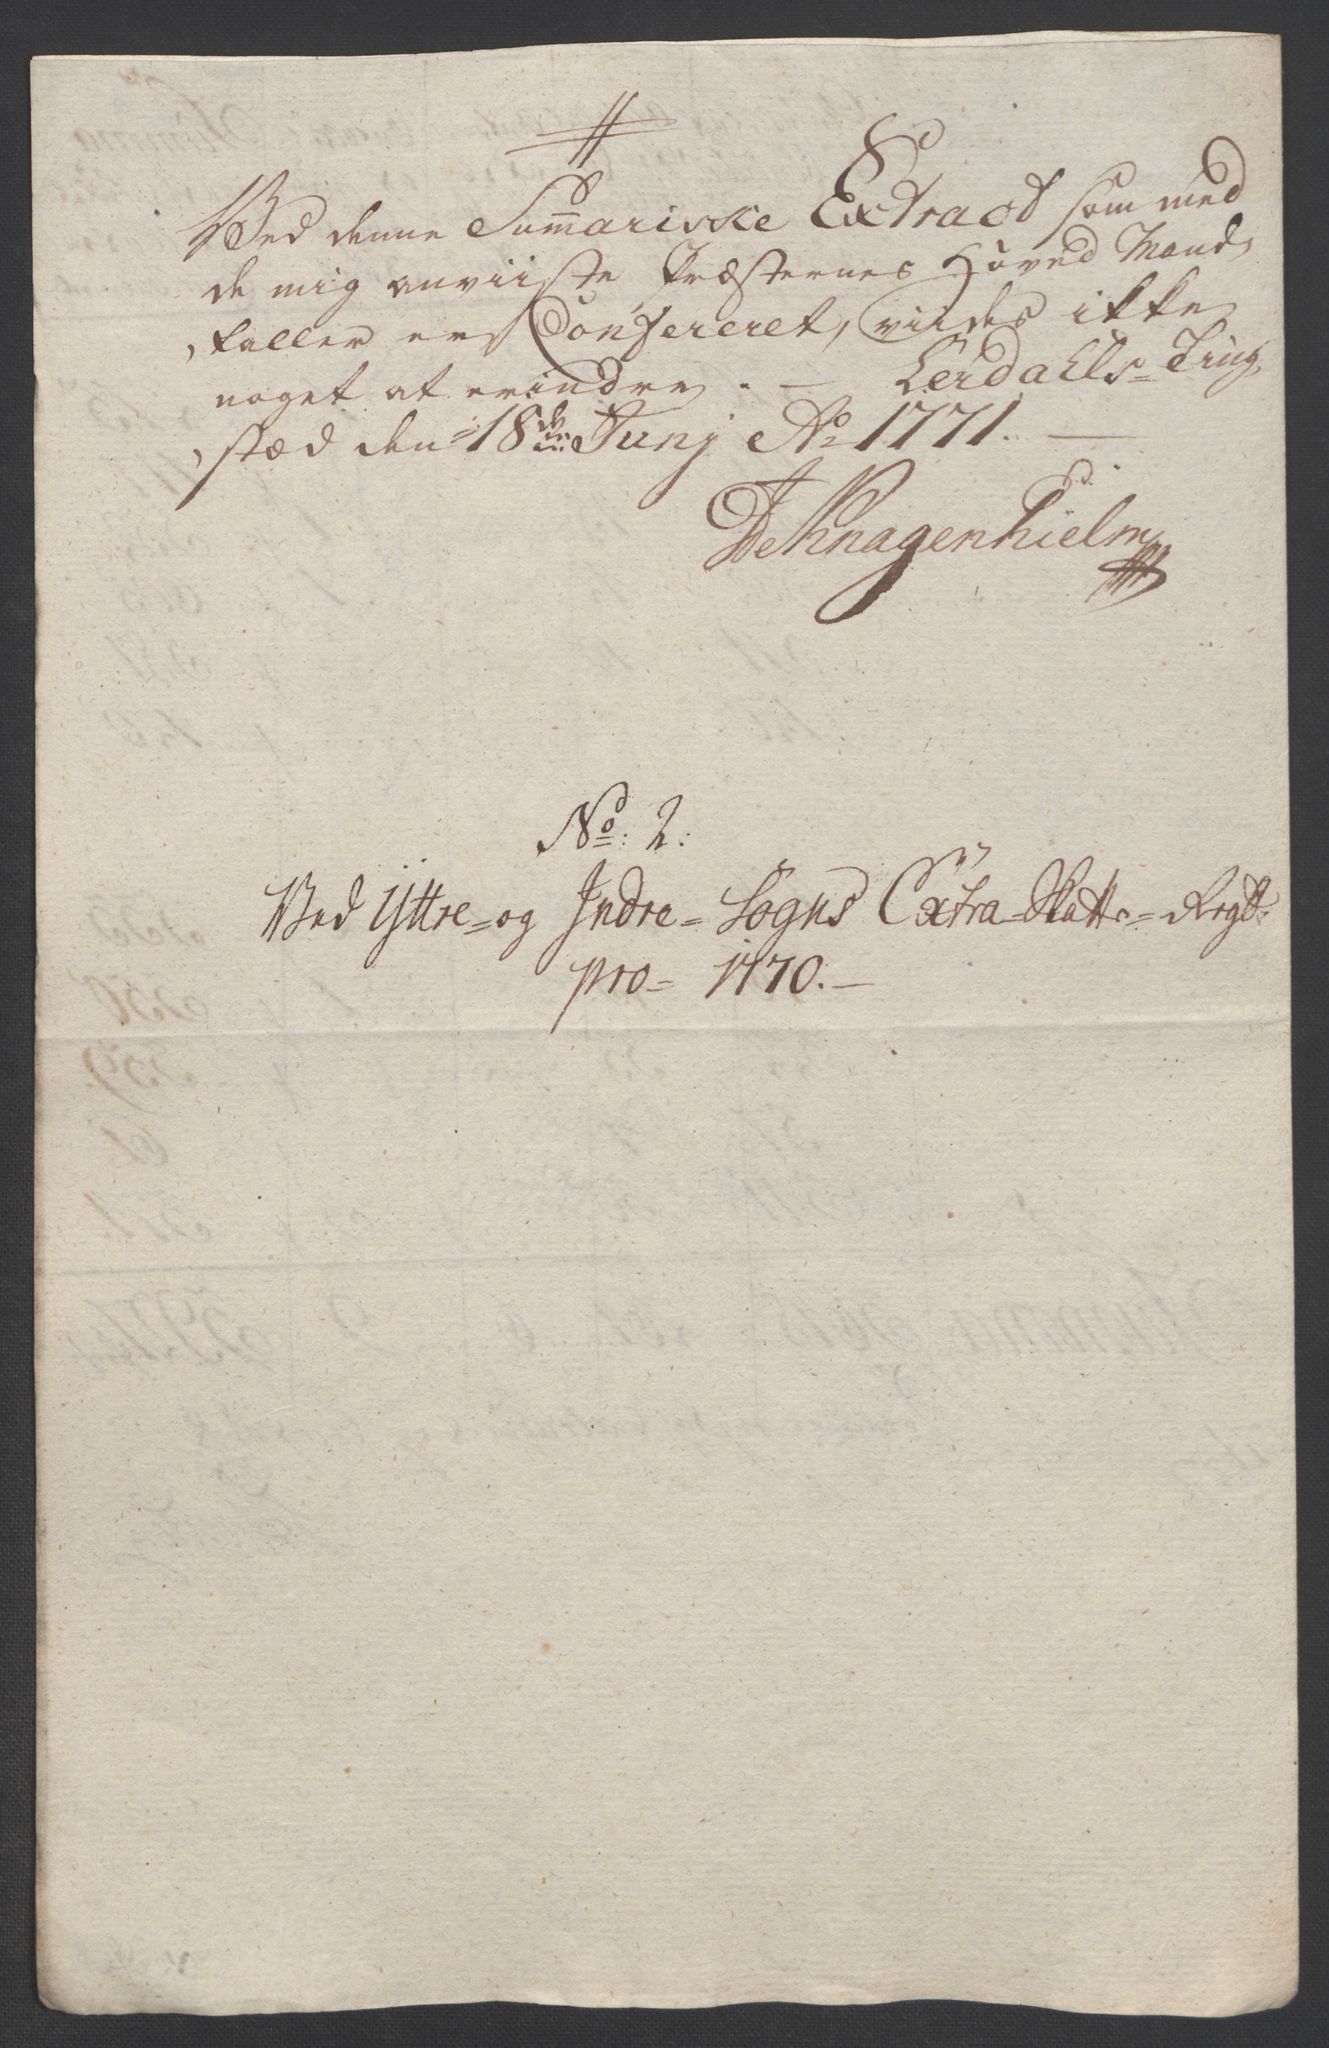 Ved denne Sum̄ariske Extract som med
de mig anviiste Præsternes Hoved Mand,
,taller er Confereret, vides ikke
noget at erindre. — Lerdahls=Ting,
,stæd den 18de Junj Ao 1771. —
de Knagenhielm
No: 2:
Ved Yttre= og Indre= Sogns Extra=Skatte=Regst:
pro= 1770. —